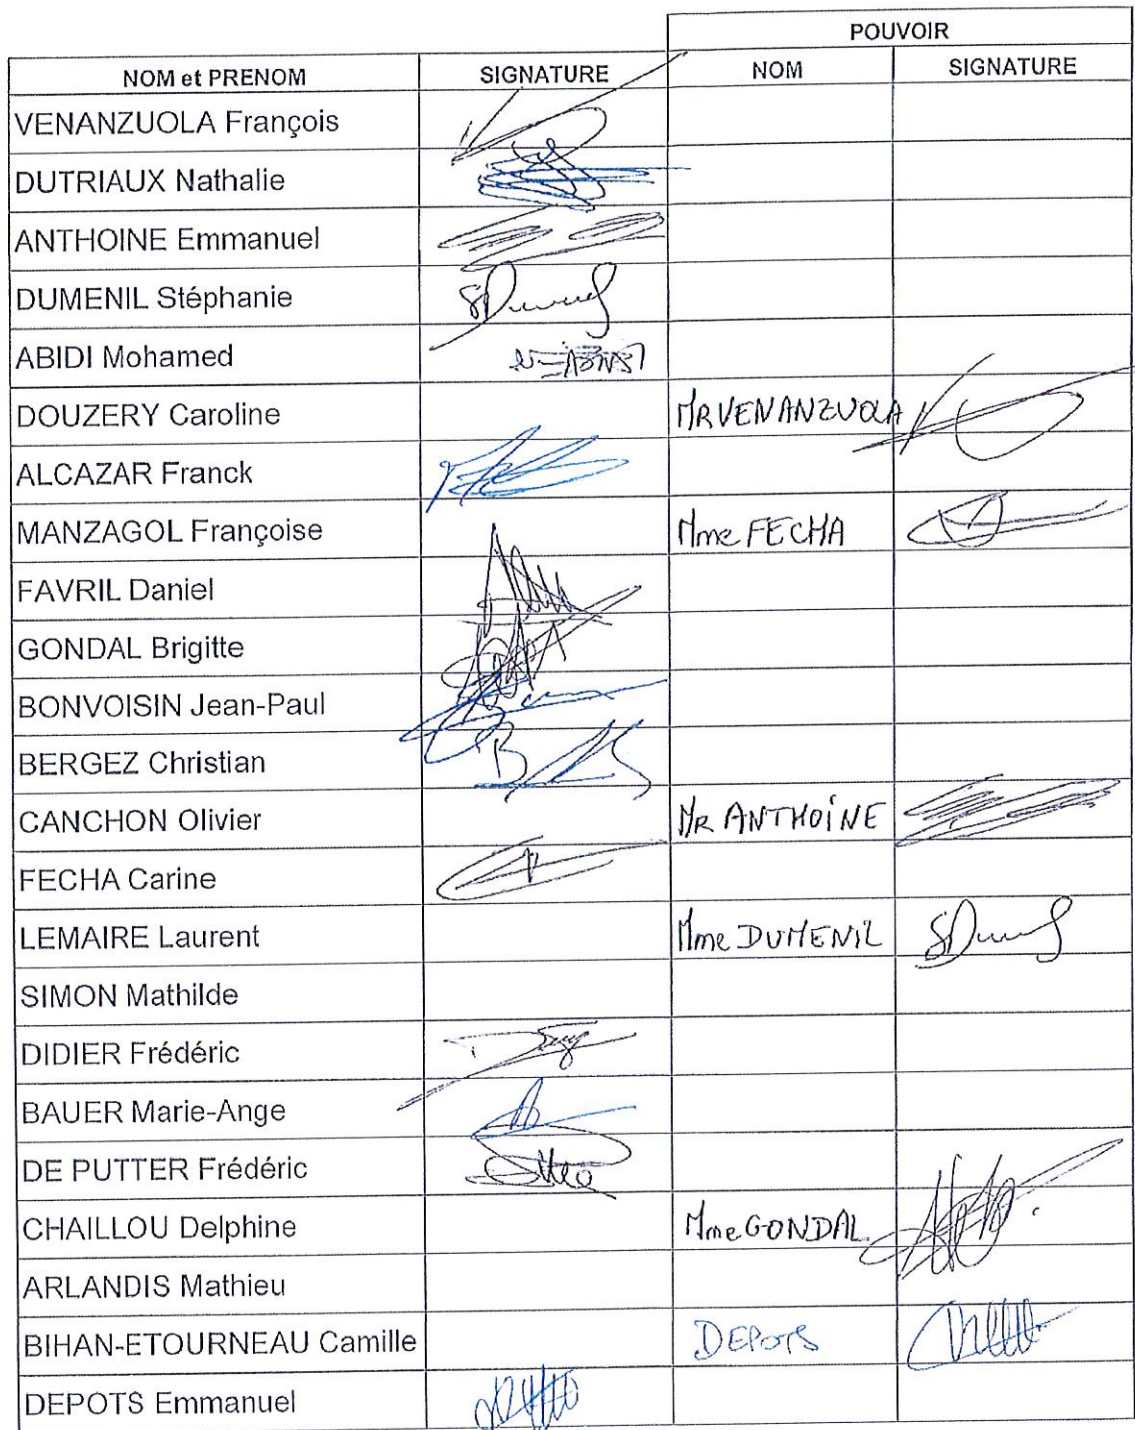 POUVOIR
NOM et PRENOM SIGNATURE NOM SIGNATURE
VENANZUOLA François
DUTRIAUX Nathalie
ANTHOINE Emmanuel
DUMENIL Stéphanie
ABIDI Mohamed
DOUZERY Caroline MR VENANZUOLA
ALCAZAR Franck
MANZAGOL Françoise Mme FECHA
FAVRIL Daniel
GONDAL Brigitte
BONVOISIN Jean-Paul
BERGEZ Christian
CANCHON Olivier MR ANTHOINE
FECHA Carine
LEMAIRE Laurent Mme DUMENIL
SIMON Mathilde
DIDIER Frédéric
BAUER Marie-Ange
DE PUTTER Frédéric
CHAILLOU Delphine Mme GONDAL
ARLANDIS Mathieu
BIHAN-ETOURNEAU Camille DEPOTS
DEPOTS Emmanuel